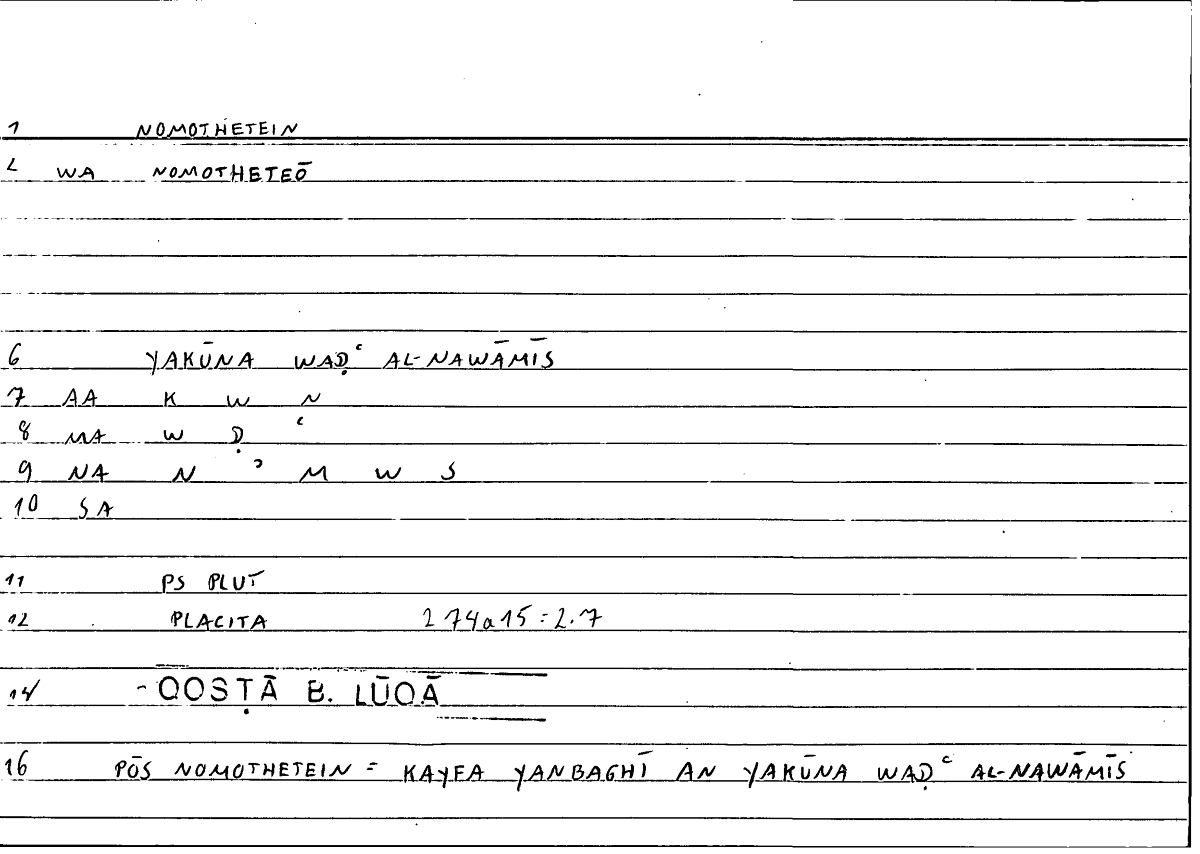 1 NOMOTHETEIN
2 WA NOMOTHETEŌ
6 YAKŪNA WAḌʿ AL-NAWĀMĪS
7 AA K W N
8 MA W Ḍ ʿ
9 NA N ʾ M W S
10 SA
11 PS PLUT
12 PLACITA 274a15=2.7
14 - QOSṬĀ B. LŪQĀ
16 PŌS NOMOTHETEIN = KAYFA YANBAGHĪ AN YAKŪNA WAḌʿ AL-NAWĀMĪS